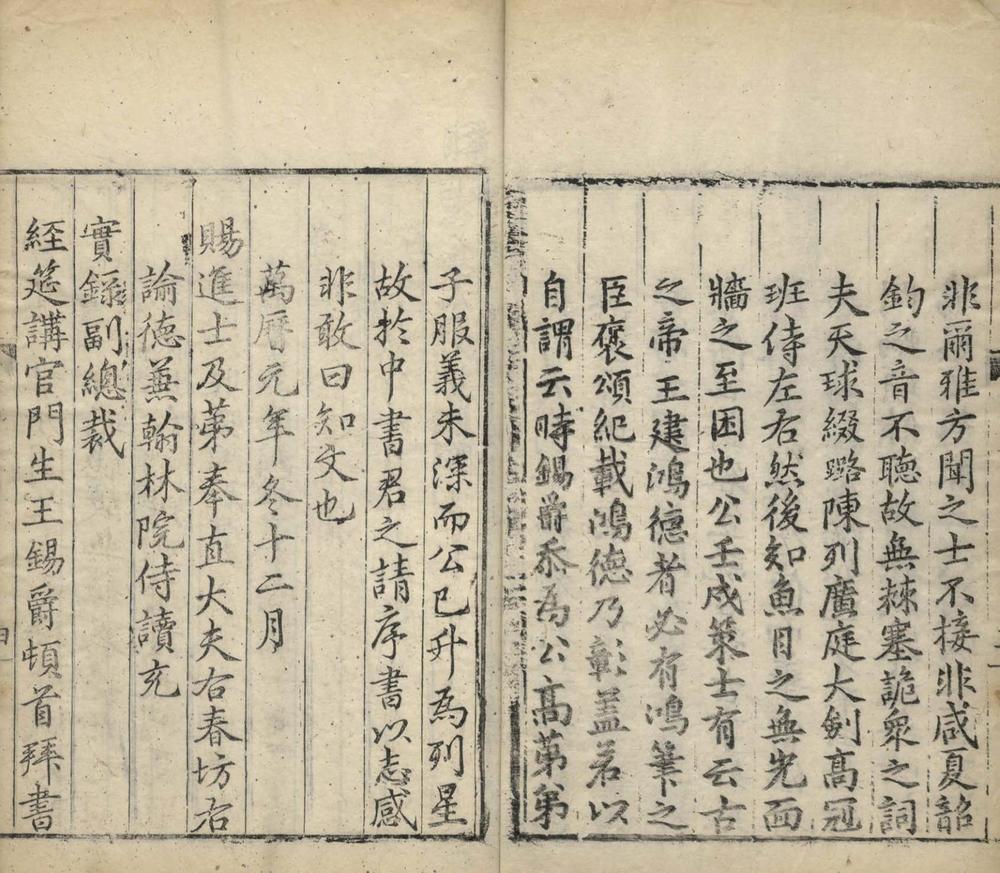 非爾雅方聞之士不接非咸夏韶
鈞之音不聽故無棘塞詭衆之詞
夫天球綴璐陳列廣庭大劍高冠
班侍左右然後知魚目之無先面
牆之至困也公壬戌策士有云古
之帝王建鴻德者必有鴻筆之
臣褒頌紀載鴻德乃彰蓋若以
自謂云時錫爵忝為公高第弟
子服義未深而公已升為列星
故於中書君之請序書以志感
非敢曰知文也
萬曆元年冬十二月
賜進士及第奉直大夫右春坊右
諭德兼翰林院侍讀充
實録副總裁
経筵講官門生王錫爵頓首拜書